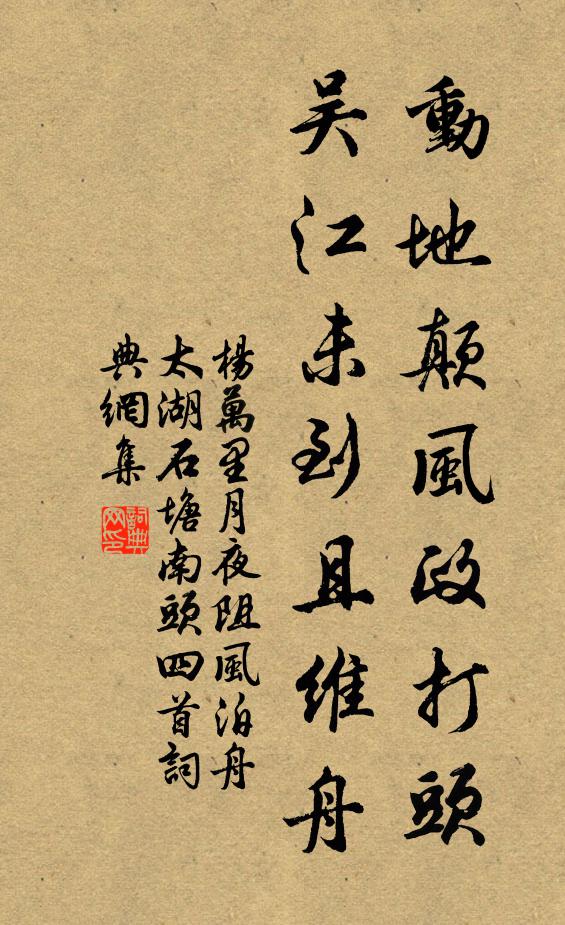 動地顛風政打頭
吳江未到且維舟
楊萬里月夜阻風泊舟
太湖石塘南頭四首詞
典網集
詞典
网印